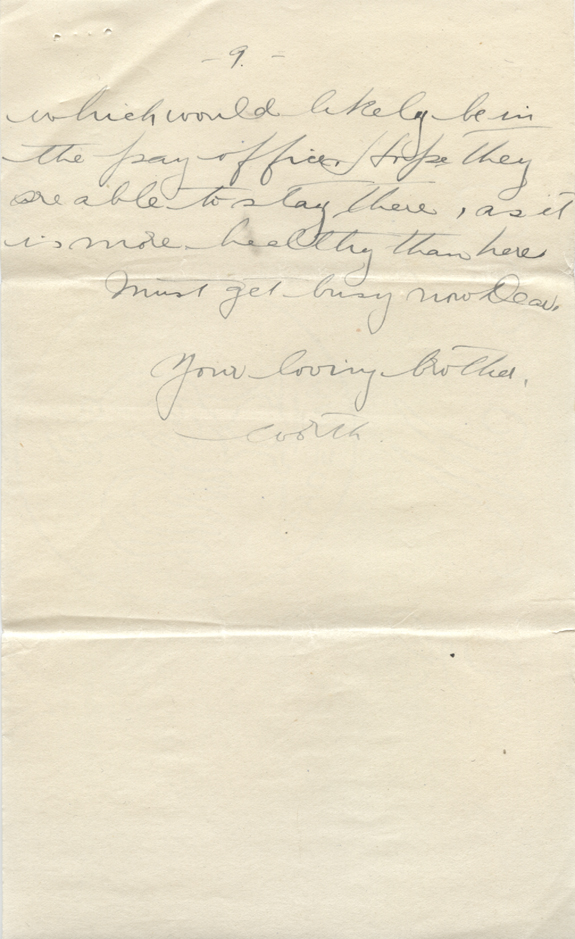 - 9. -
which would likely be in
the pay office. Hope they
are able to stay there, as it
is more healthy than here
Must get busy now Dear,
Your loving brother,
Worth.